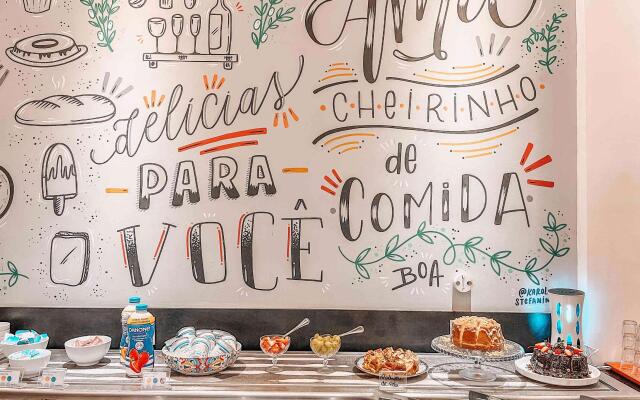 delícias
PARA
VOCÊ
Amo
CHEIRINHO
de
COMIDA
BOA
DANONE